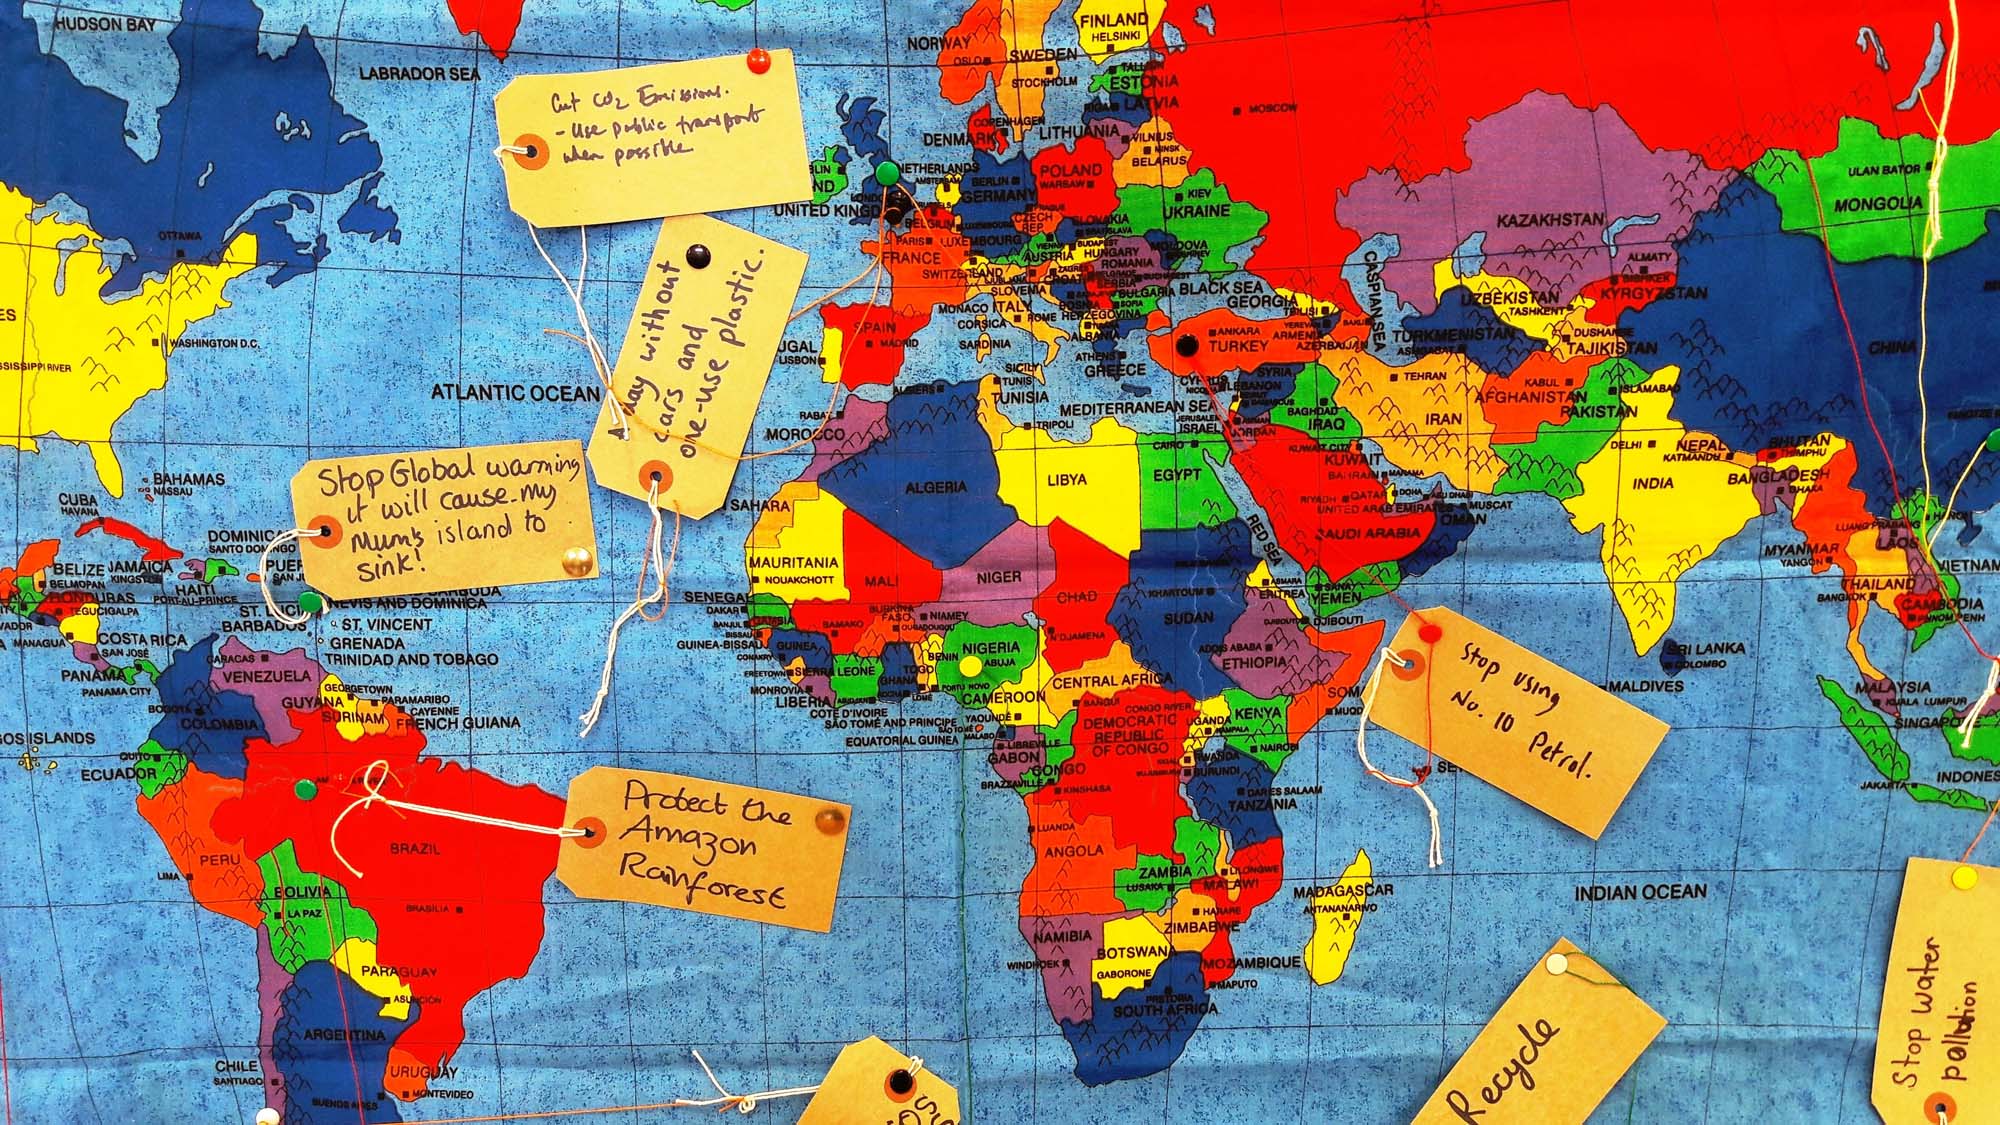 Cut CO2 Emissions.
- Use public transport
when possible
day without
cars and
one-use plastic.
Stop Global warming
it will cause my
Mum's island to
sink!
Protect the
Amazon
Rainforest
Stop using
No. 10 Petrol.
Recycle
Stop water
pollution
HUDSON BAY
LABRADOR SEA
OTTAWA
WASHINGTON D.C.
MISSISSIPPI RIVER
ATLANTIC OCEAN
BAHAMAS
NASSAU
CUBA
HAVANA
SANTO DOMINGO
BELIZE
BELMOPAN
JAMAICA
HAITI
PORT-AU-PRINCE
HONDURAS
TEGUCIGALPA
MANAGUA
COSTA RICA
SAN JOSÉ
PANAMA
PANAMA CITY
BARBADOS
NEVIS AND DOMINICA
ST. VINCENT
GRENADA
TRINIDAD AND TOBAGO
CARACAS
VENEZUELA
GEORGETOWN
GUYANA
PARAMARIBO
SURINAM
CAYENNE
FRENCH GUIANA
BOGOTA
COLOMBIA
QUITO
ECUADOR
PERU
LIMA
BRAZIL
BRASILIA
BOLIVIA
LA PAZ
PARAGUAY
ASUNCIÓN
ARGENTINA
BUENOS AIRES
CHILE
SANTIAGO
URUGUAY
MONTEVIDEO
NORWAY
OSLO
SWEDEN
STOCKHOLM
FINLAND
HELSINKI
ESTONIA
LATVIA
LITHUANIA
VILNIUS
MINSK
BELARUS
MOSCOW
COPENHAGEN
DENMARK
NETHERLANDS
BERLIN
GERMANY
POLAND
WARSAW
KIEV
UKRAINE
UNITED KINGD
BELGIUM
LUXEMBOURG
CZECH
REP
SLOVAKIA
PARIS
FRANCE
AUSTRIA
HUNGARY
MOLDOVA
ROMANIA
SLOVENIA
SERBIA
BULGARIA
SOFIA
MONACO
ITALY
ROME
HERZEGOVINA
CORSICA
SARDINIA
ALBANIA
ATHENS
GREECE
SICILY
SPAIN
MADRID
LISBON
BLACK SEA
GEORGIA
TBILISI
ANKARA
TURKEY
ARMENIA
AZERBAIJAN
CASPIAN SEA
KAZAKHSTAN
ALMATY
BISHKEK
KYRGYZSTAN
UZBEKISTAN
TASHKENT
TURKMENISTAN
ASHGABAT
DUSHANBE
TAJIKISTAN
ULAN BATOR
MONGOLIA
CHINA
TEHRAN
IRAN
KABUL
AFGHANISTAN
ISLAMABAD
PAKISTAN
SYRIA
LEBANON
BAGHDAD
IRAQ
ISRAEL
JORDAN
KUWAIT CITY
KUWAIT
RIYADH
QATAR
DOHA
ABU DHABI
MUSCAT
UNITED ARAB EMIRATES
OMAN
SAUDI ARABIA
YEMEN
RED SEA
MEDITERRANEAN SEA
ALGIERS
TUNIS
TUNISIA
TRIPOLI
RABAT
MOROCCO
ALGERIA
LIBYA
CAIRO
EGYPT
SAHARA
MAURITANIA
NOUAKCHOTT
MALI
NIGER
CHAD
N'DJAMENA
KHARTOUM
SUDAN
ASMARA
ERITREA
DJIBOUTI
ADDIS ABABA
ETHIOPIA
SENEGAL
DAKAR
GAMBIA
BANJUL
BISSAU
GUINEA-BISSAU
GUINEA
CONAKRY
FREETOWN
SIERRA LEONE
MONROVIA
LIBERIA
BAMAKO
BURKINA
FASO
NIAMEY
GHANA
TOGO
BENIN
NIGERIA
ABUJA
PORTO NOVO
COTE D'IVOIRE
SÃO TOMÉ AND PRINCIPE
EQUATORIAL GUINEA
CAMEROON
YAOUNDÉ
MALABO
CENTRAL AFRICA
BANGUI
CONGO RIVER
DEMOCRATIC
REPUBLIC
OF CONGO
LIBREVILLE
GABON
CONGO
BRAZZAVILLE
KINSHASA
UGANDA
KAMPALA
KENYA
NAIROBI
RWANDA
BURUNDI
DAR ES SALAAM
TANZANIA
LUANDA
ANGOLA
ZAMBIA
LUSAKA
LILONGWE
MALAWI
HARARE
ZIMBABWE
MOZAMBIQUE
MAPUTO
NAMIBIA
WINDHOEK
BOTSWANA
GABORONE
PRETORIA
SOUTH AFRICA
MADAGASCAR
ANTANANARIVO
INDIAN OCEAN
DELHI
NEPAL
KATMANDU
BHUTAN
THIMPHU
INDIA
BANGLADESH
DHAKA
SRI LANKA
COLOMBO
MALDIVES
MYANMAR
YANGON
LUANG PRABANG
LAOS
HANOI
VIETNAM
THAILAND
BANGKOK
CAMBODIA
PHNOM PENH
MALAYSIA
KUALA LUMPUR
SINGAPO
INDONES
JAKARTA